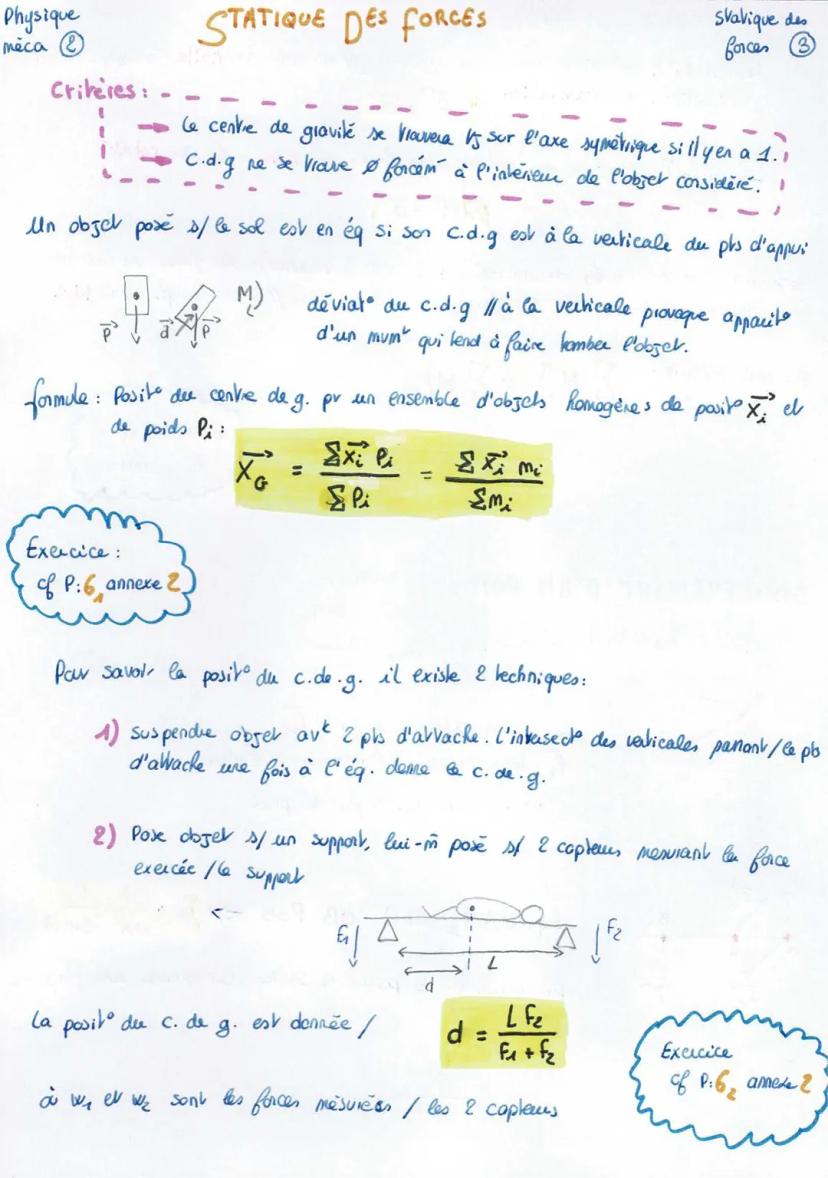 Physique
méca (2)
STATIQUE DES FORCES
Statique des
forces (3)
Critères :
→ Le centre de gravité se trouvera tjs sur l'axe symétrique si il y en a 1.
→ C.d.g ne se trouve ∅ forcém^t à l'intérieur de l'objet considéré.
Un objet posé s/ le sol est en éq si son c.d.g est à la verticale du pts d'appui
P d P M)
déviat° du c.d.g // à la verticale provoque apparit°
d'un mvm^t qui tend à faire tomber l'objet.
formule : Posit° du centre de g. pr un ensemble d'objets homogènes de posit° X⃗i et
de poids Pi :
X⃗G = ΣX⃗i Pi / ΣPi = ΣX⃗i mi / Σmi
Exercice :
cf P:6,1 annexe 2
Pour savoir la posit° du c.de.g. il existe 2 techniques :
1) Suspendre objet av^t 2 pts d'attache. L'intersect° des verticales passant / le pts
d'attache une fois à l'éq. donne le c.de.g.
2) Pose objet s/ un support, lui-m̂ posé s/ 2 capteurs mesurant la force
exercée / le support
F1 F2
L
d
La posit° du c. de g. est donnée /
d = L F2 / F1 + F2
où w1 et w2 sont les forces mesurées / les 2 capteurs
Exercice
cf P:6 2 annexe 2